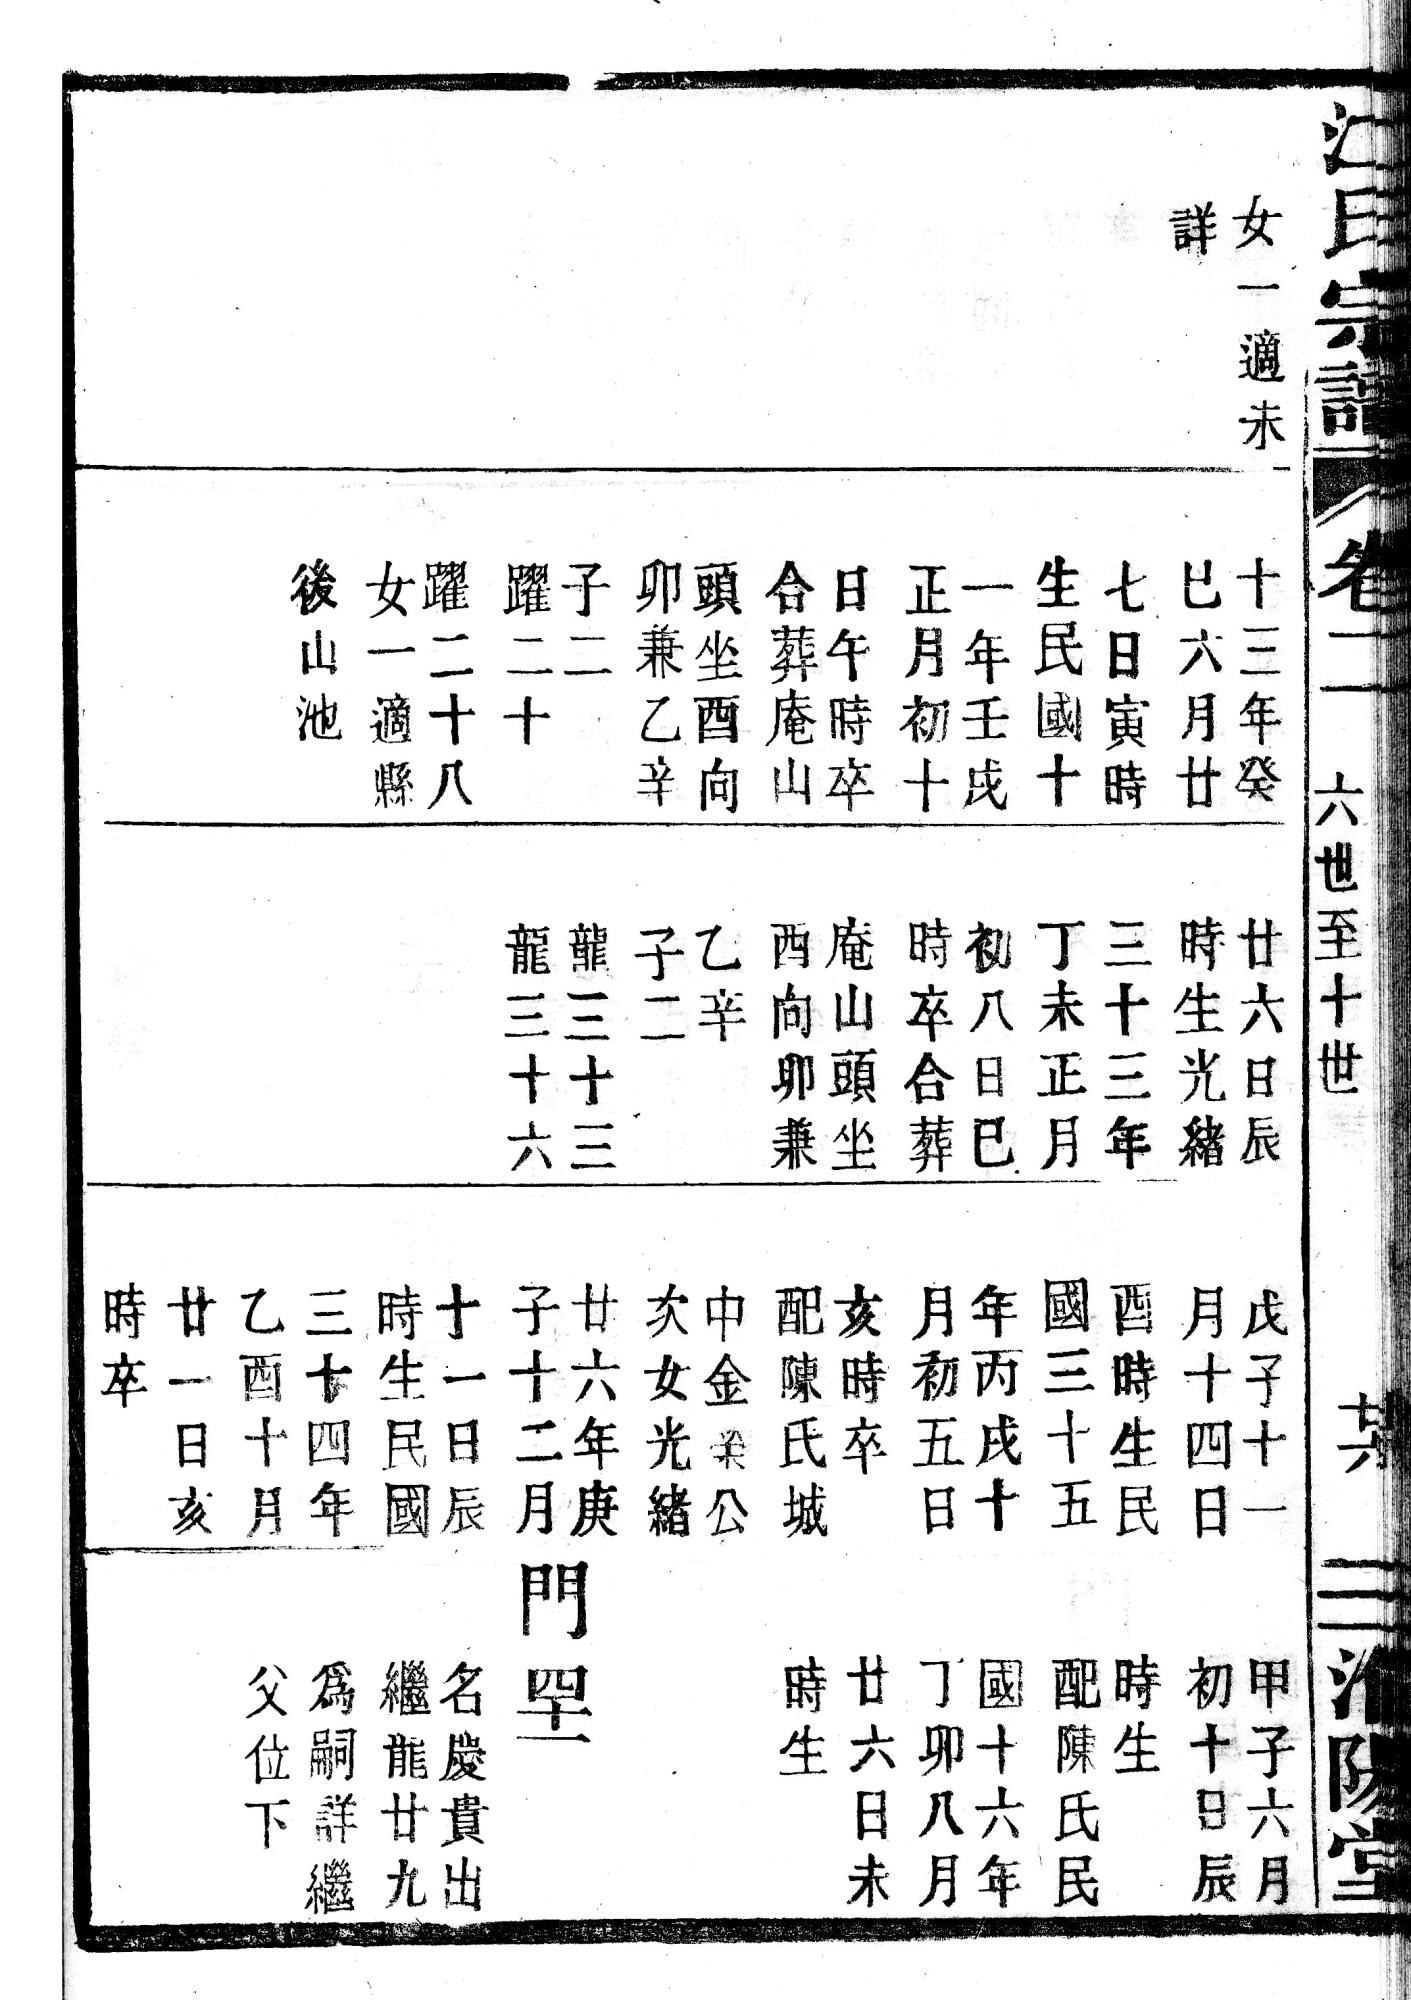 江氏宗譜
卷二
六世至十世
淮陽堂
女一適未
詳
十三年癸
巳六月廿
七日寅時
生民國十
一年壬戌
正月初十
日午時卒
合葬庵山
頭坐酉向
卯兼乙辛
子二
躍二十
躍二十八
女一適縣
後山池
廿六日辰
時生光緒
三十三年
丁未正月
初八日巳
時卒合葬
庵山頭坐
酉向卯兼
乙辛
子二
龍三十三
龍三十六
戊子十一
月十四日
酉時生民
國三十五
年丙戌十
月初五日
亥時卒
配陳氏城
中金癸公
次女光緒
廿六年庚
子十二月
十一日辰
時生民國
三十四年
乙酉十月
廿一日亥
時卒
甲子六月
初十日辰
時生
配陳氏民
國十六年
丁卯八月
廿六日未
時生
門四十一
名慶貴出
繼龍廿九
為嗣詳繼
父位下